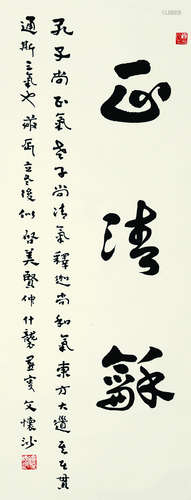 正清龢
孔子尚正氣老子尚清氣釋迦尚和氣東方大道其在貫
通斯三氣也立冬後美賢仲什襲燕叟文懷沙